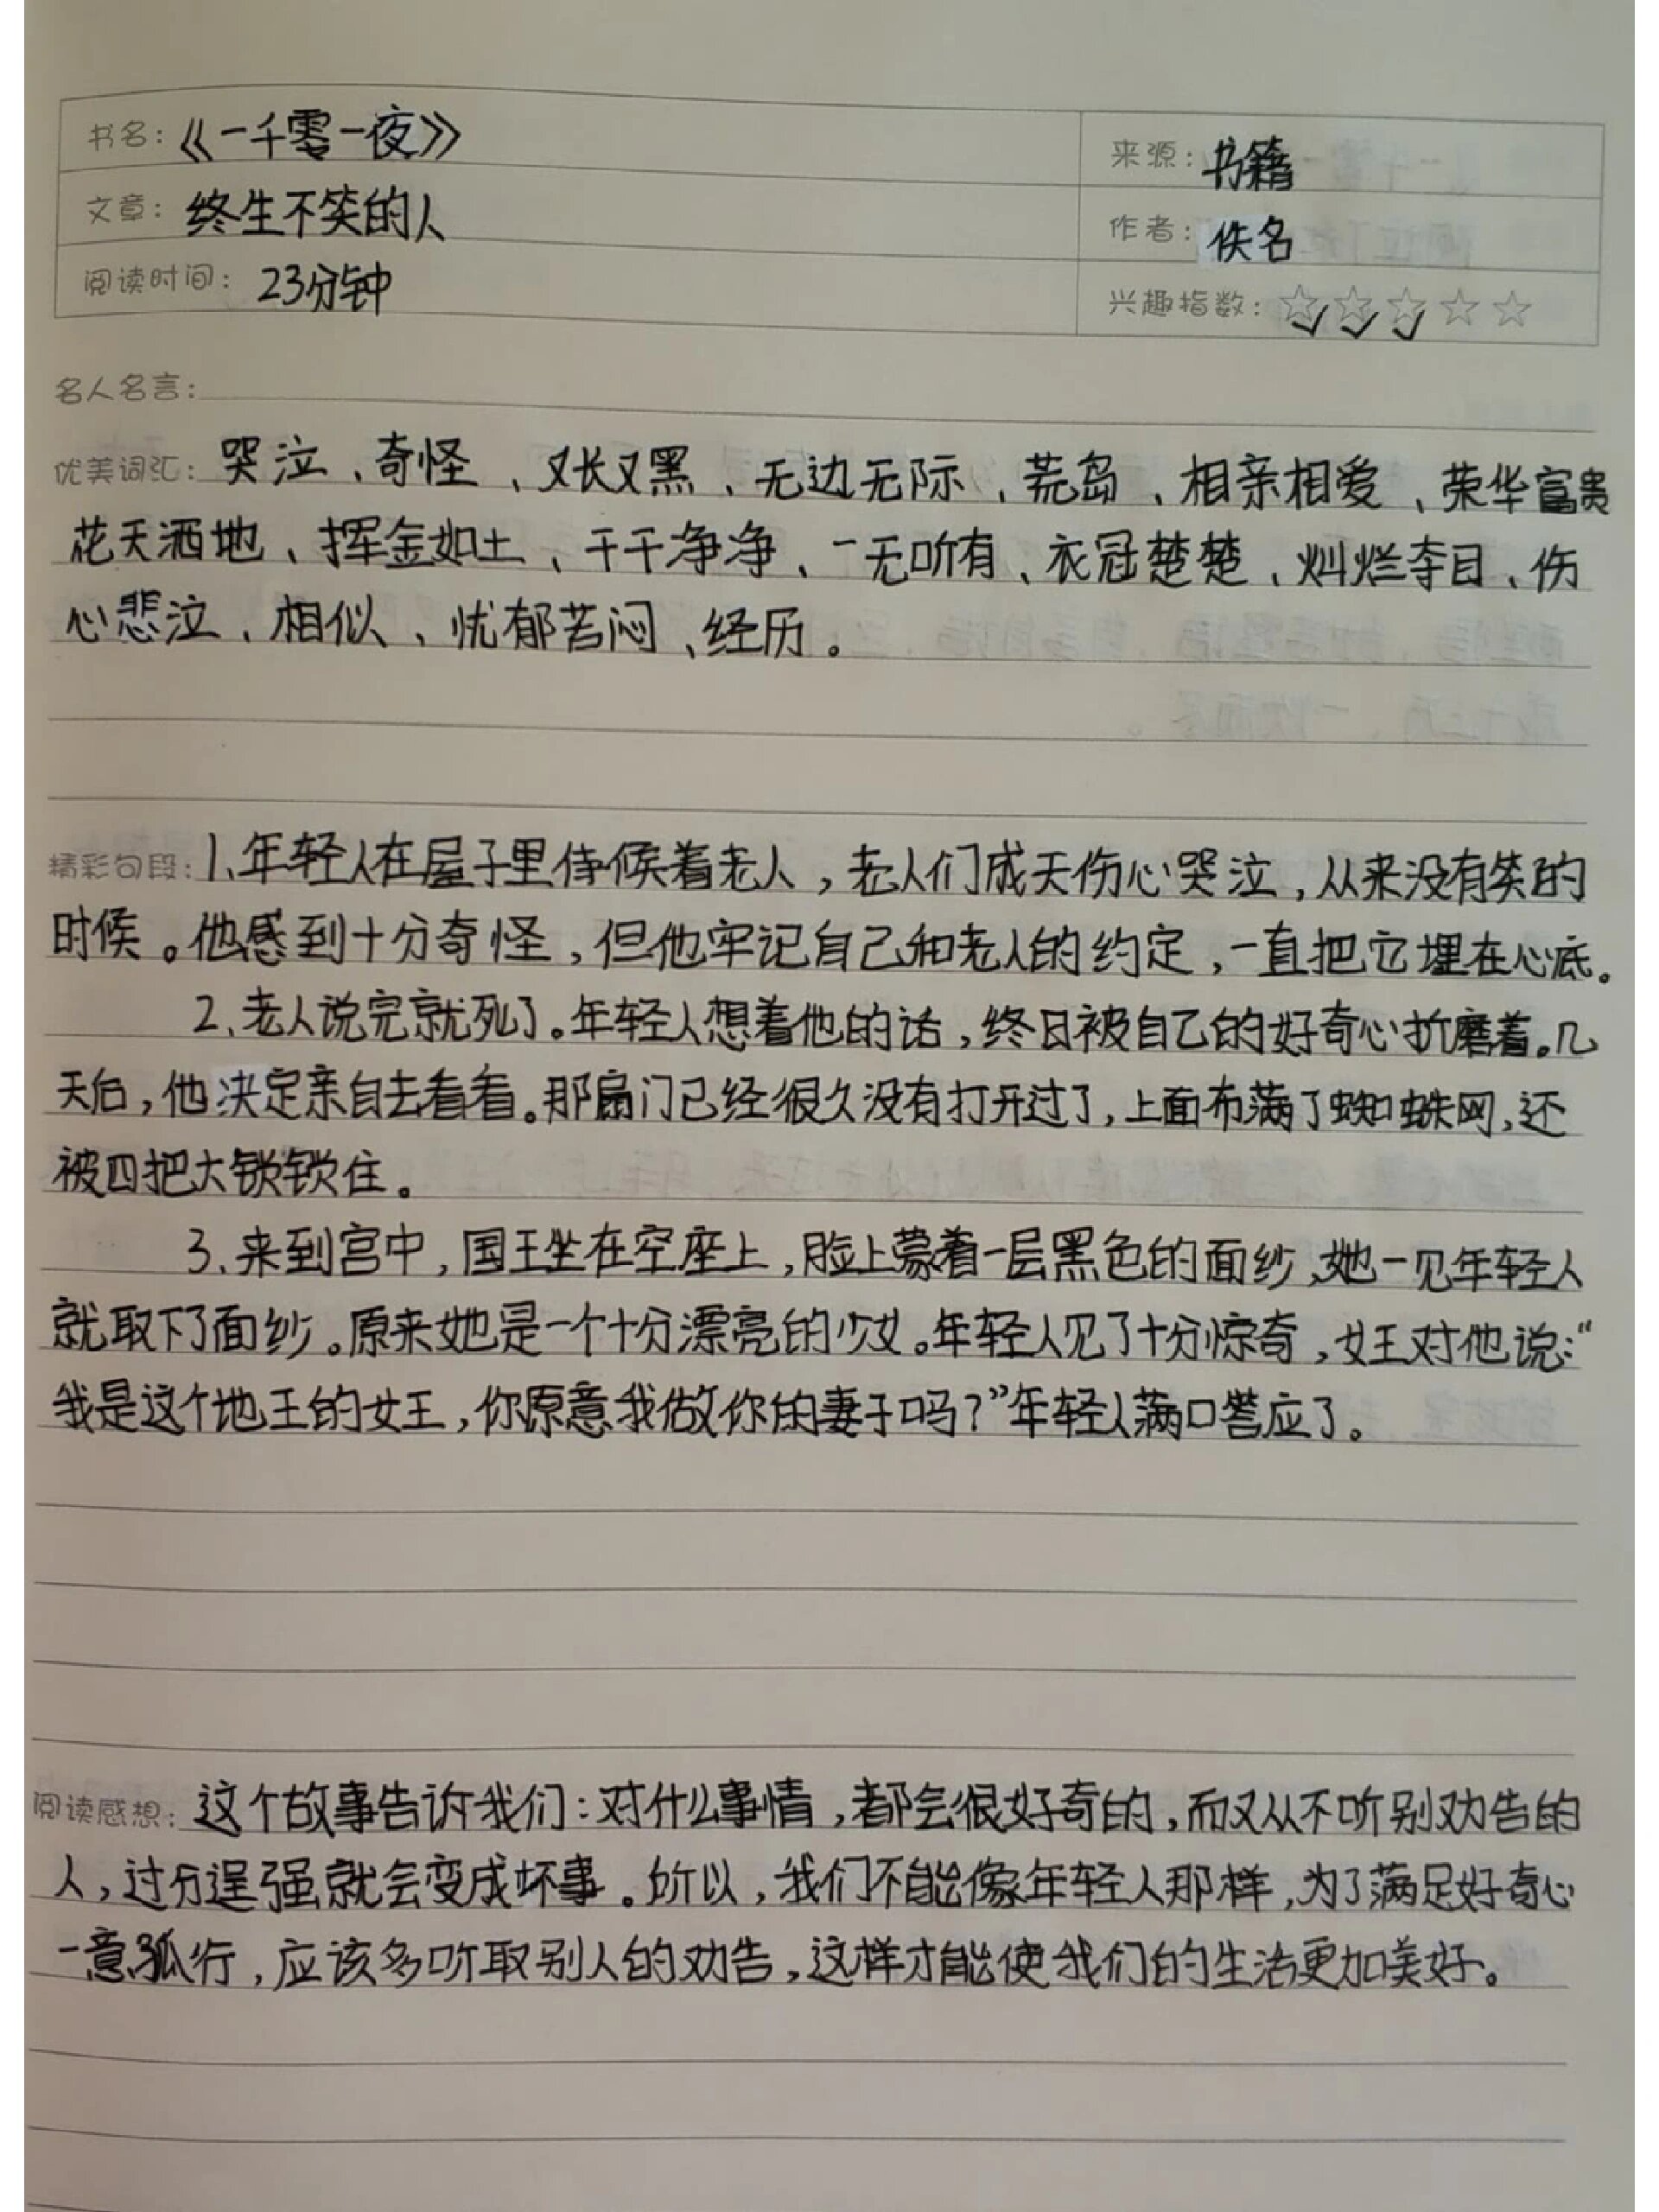 书名：《一千零一夜》
来源：书籍
文章：终生不笑的人
作者：佚名
阅读时间：23分钟
兴趣指数：☆☆☆☆☆
名人名言：
优美词汇：哭泣、奇怪、又长又黑、无边无际、荒岛、相亲相爱、荣华富贵
花天酒地、挥金如土、干干净净、一无所有、衣冠楚楚、灿烂夺目、伤
心悲泣、相似、忧郁苦闷、经历。
精彩句段：1、年轻人在屋子里侍候着老人，老人们成天伤心哭泣，从来没有笑的
时候。他感到十分奇怪，但他牢记自己和老人的约定，一直把它埋在心底。
2、老人说完就死了。年轻人想着他的话，终日被自己的好奇心折磨着。几
天后，他决定亲自去看看。那扇门已经很久没有打开过了，上面布满了蜘蛛网，还
被四把大锁锁住。
3、来到宫中，国王坐在空座上，脸上蒙着一层黑色的面纱，她一见年轻人
就取下了面纱。原来她是一个十分漂亮的少女。年轻人见了十分惊奇，女王对他说：“
我是这个地王的女王，你原意我做你的妻子吗？”年轻人满口答应了。
阅读感想：这个故事告诉我们：对什么事情，都会很好奇的，而又从不听别劝告的
人，过分逞强就会变成坏事。所以，我们不能像年轻人那样，为了满足好奇心
一意孤行，应该多听取别人的劝告，这样才能使我们的生活更加美好。